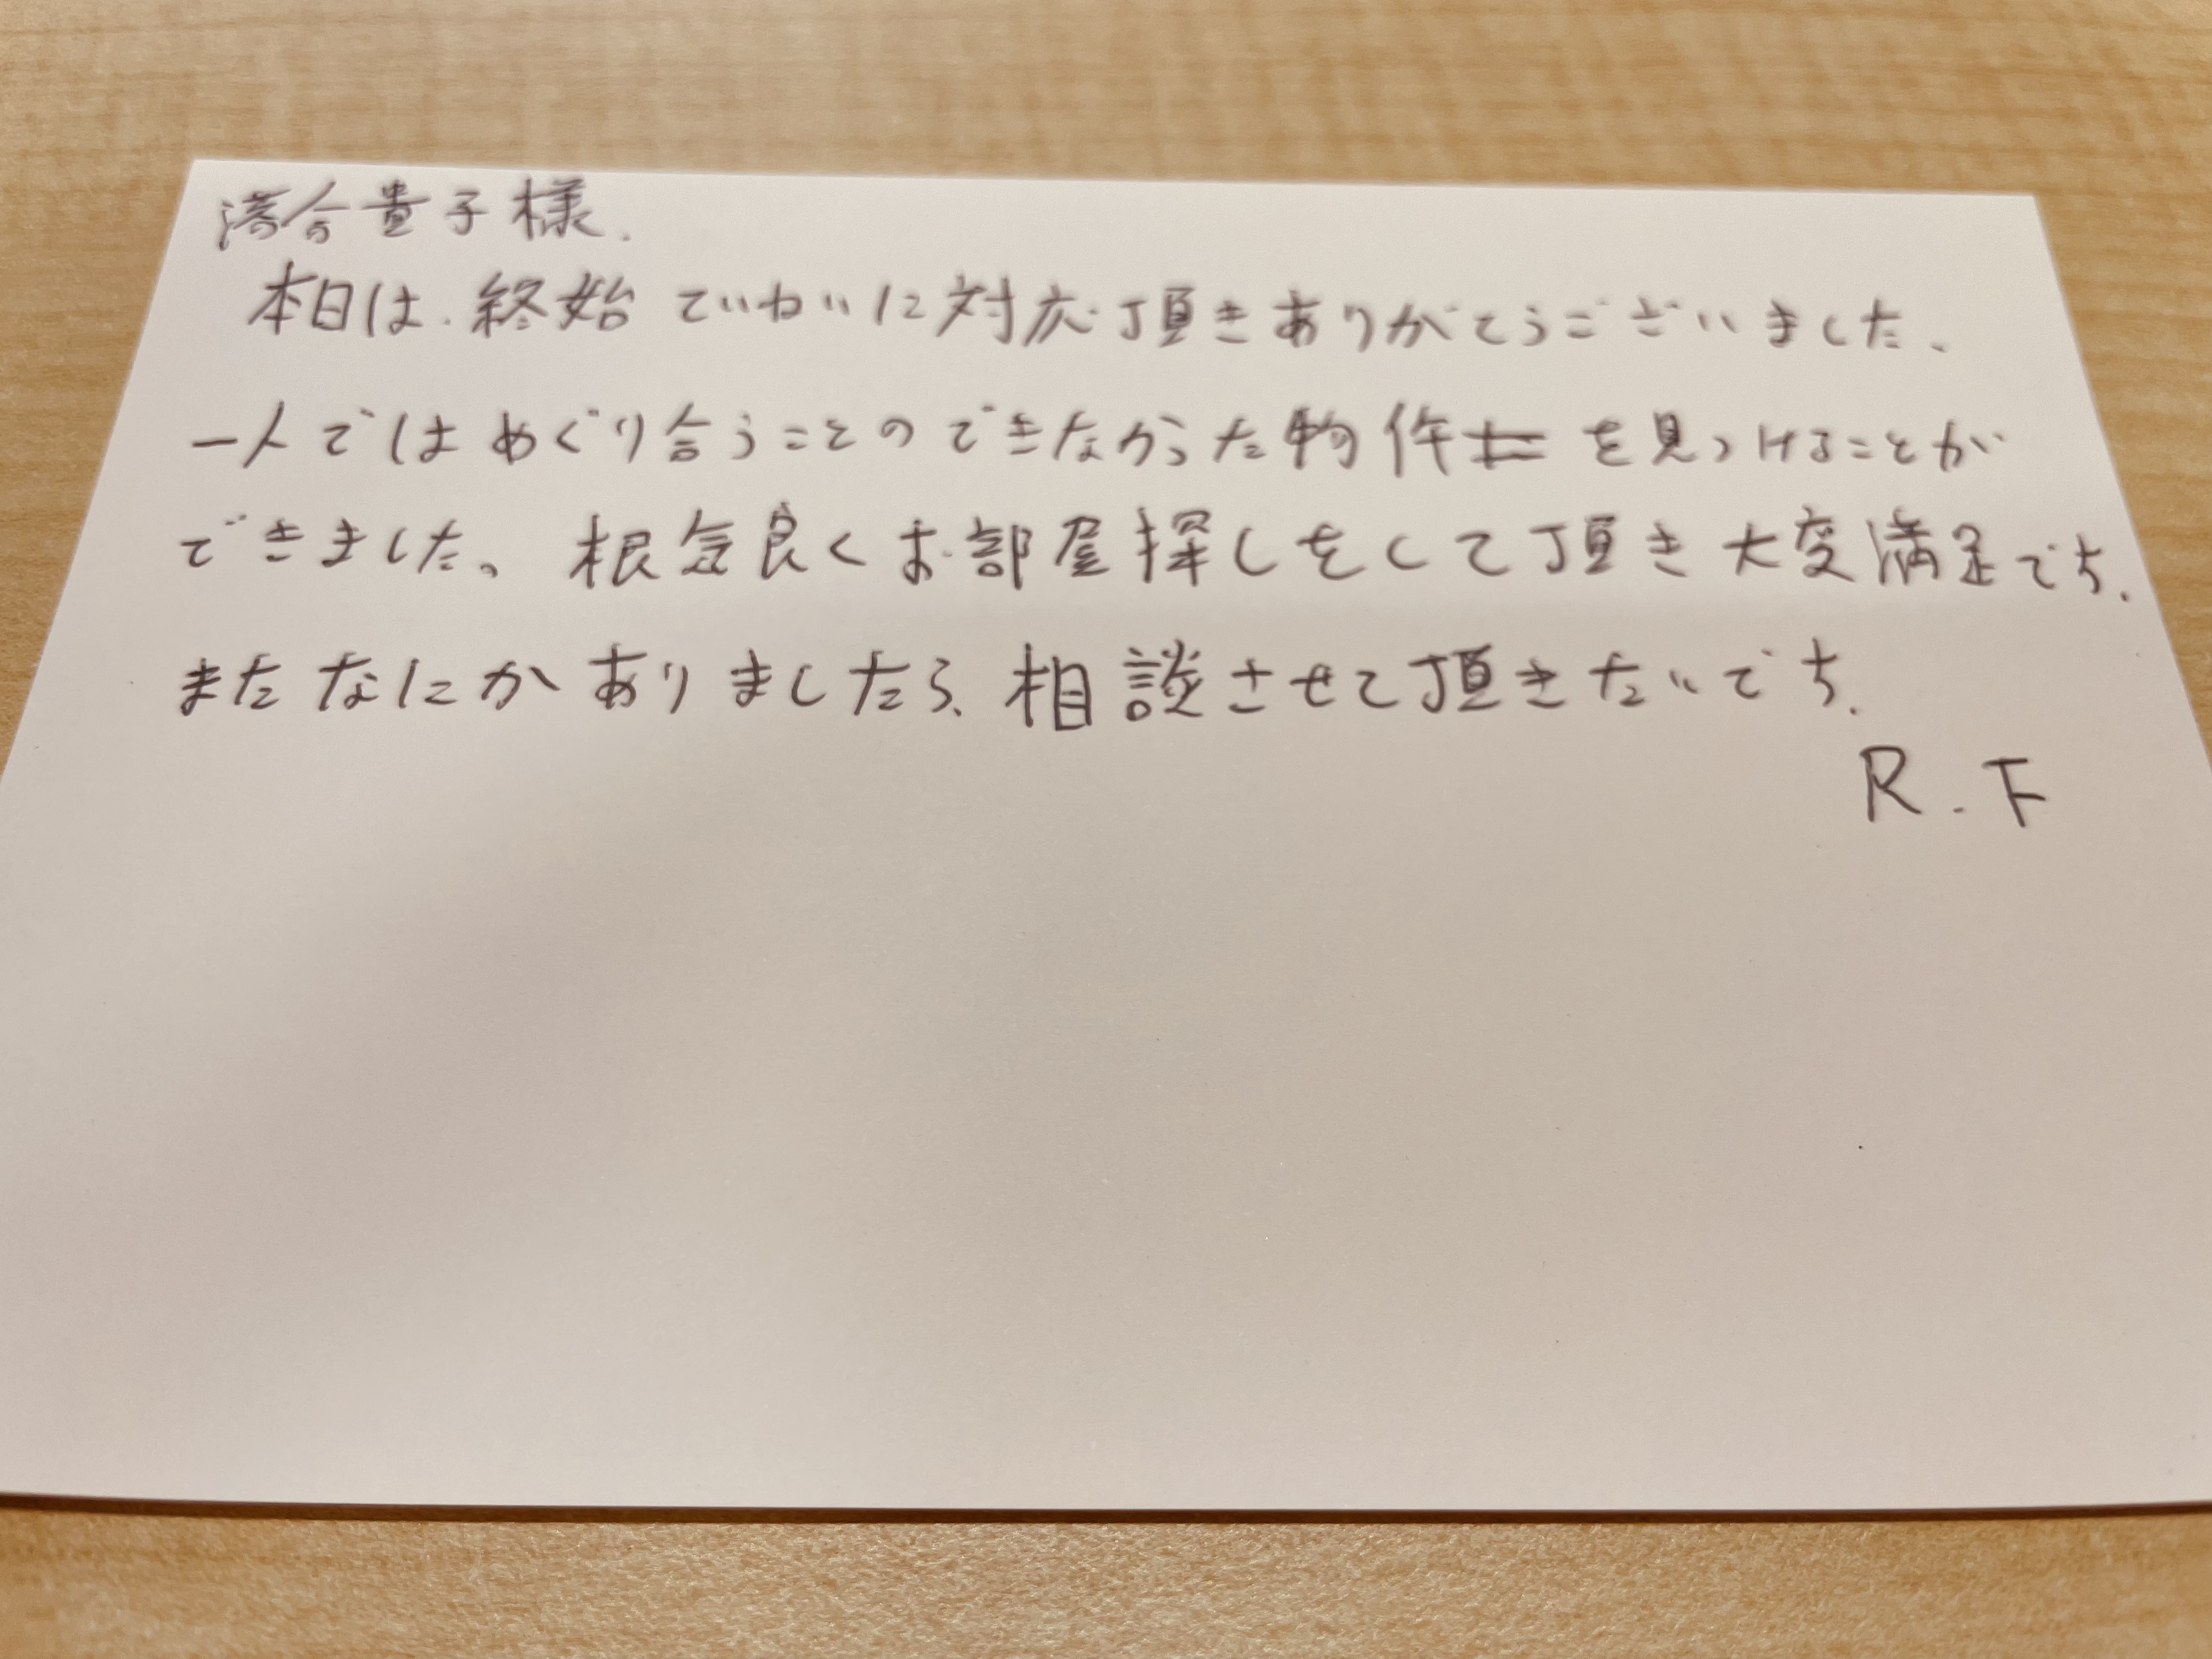 落合貴子様.
本日は.終始ていねいに対応頂きありがとうございました、
一人ではめぐり合うことのできなかった物件を見つけることが
できました。根気良くお部屋探しをして頂き大変満足です.
またなにかありましたら、相談させて頂きたいです.
R.F